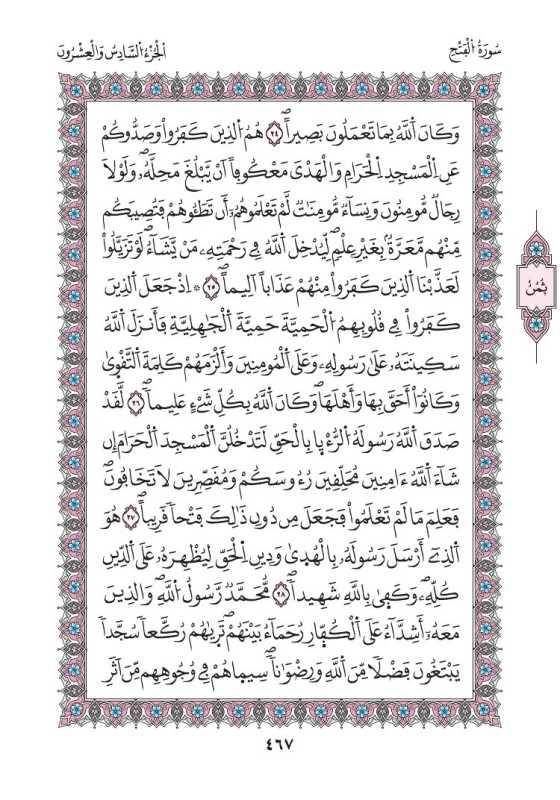 سُورَةُ اُ۬لْفَتْحِ
اَلْجُزْءُ السَّادِسُ وَالْعِشْرُونَ
وَكَانَ اَ۬للَّهُ بِمَا تَعْمَلُونَ بَصِيراًۖ ٢٤ هُمُ اُ۬لذِينَ كَفَرُواْ وَصَدُّوكُمْ
عَنِ اِ۬لْمَسْجِدِ اِ۬لْحَرَامِ وَالْهَدْيَ مَعْكُوفاً اَنْ يَّبْلُغَ مَحِلَّهُۥۖ وَلَوْلَا
رِجَالٞ مُّومِنُونَ وَنِسَآءٞ مُّومِنَٰتٞ لَّمْ تَعْلَمُوهُمُۥٓ أَن تَطَـُٔوهُمْ فَتُصِيبَكُم
مِّنْهُم مَّعَرَّةُۢ بِغَيْرِ عِلْمٖ لِّيُدْخِلَ اَ۬للَّهُ فِي رَحْمَتِهِۦ مَنْ يَّشَآءُۖ لَوْ تَزَيَّلُواْ
لَعَذَّبْنَا اَ۬لذِينَ كَفَرُواْ مِنْهُمْ عَذَاباً اَلِيماًۖ ٢٥ ۞ اِذْ جَعَلَ اَ۬لذِينَ
كَفَرُواْ فِي قُلُوبِهِمُ اُ۬لْحَمِيَّةَ حَمِيَّةَ اَ۬لْجَٰهِلِيَّةِ فَأَنزَلَ اَ۬للَّهُ
سَكِينَتَهُۥ عَلَىٰ رَسُولِهِۦ وَعَلَى اَ۬لْمُومِنِينَ وَأَلْزَمَهُمْ كَلِمَةَ اَ۬لتَّقْو۪يٰ
وَكَانُوٓاْ أَحَقَّ بِهَا وَأَهْلَهَاۖ وَكَانَ اَ۬للَّهُ بِكُلِّ شَےْءٍ عَلِيماًۖ ٢٦ لَّقَدْ
صَدَقَ اَ۬للَّهُ رَسُولَهُ اُ۬لرُّءْي۪ا بِالْحَقِّ لَتَدْخُلُنَّ اَ۬لْمَسْجِدَ اَ۬لْحَرَامَ إِن
شَآءَ اَ۬للَّهُ ءَامِنِينَ مُحَلِّقِينَ رُءُوسَكُمْ وَمُقَصِّرِينَ لَا تَخَافُونَۖ
فَعَلِمَ مَا لَمْ تَعْلَمُواْ فَجَعَلَ مِن دُونِ ذَٰلِكَ فَتْحاٗ قَرِيباًۖ ٢٧ هُوَ
اَ۬لذِےٓ أَرْسَلَ رَسُولَهُۥ بِالْهُد۪يٰ وَدِينِ اِ۬لْحَقِّ لِيُظْهِرَهُۥ عَلَى اَ۬لدِّينِ
كُلِّهِۦۖ وَكَف۪يٰ بِاللَّهِ شَهِيداٗۖ ٢٨ مُّحَمَّدٞ رَّسُولُ اُ۬للَّهِۖ وَالذِينَ
مَعَهُۥٓ أَشِدَّآءُ عَلَى اَ۬لْكُفّ۪ارِ رُحَمَآءُ بَيْنَهُمْۖ تَر۪يٰهُمْ رُكَّعاٗ سُجَّداٗ
يَبْتَغُونَ فَضْلاٗ مِّنَ اَ۬للَّهِ وَرِضْوَٰناٗۖ سِيم۪اهُمْ فِي وُجُوهِهِم مِّنَ اَثَرِ
ثُمُنُ
٤٦٧